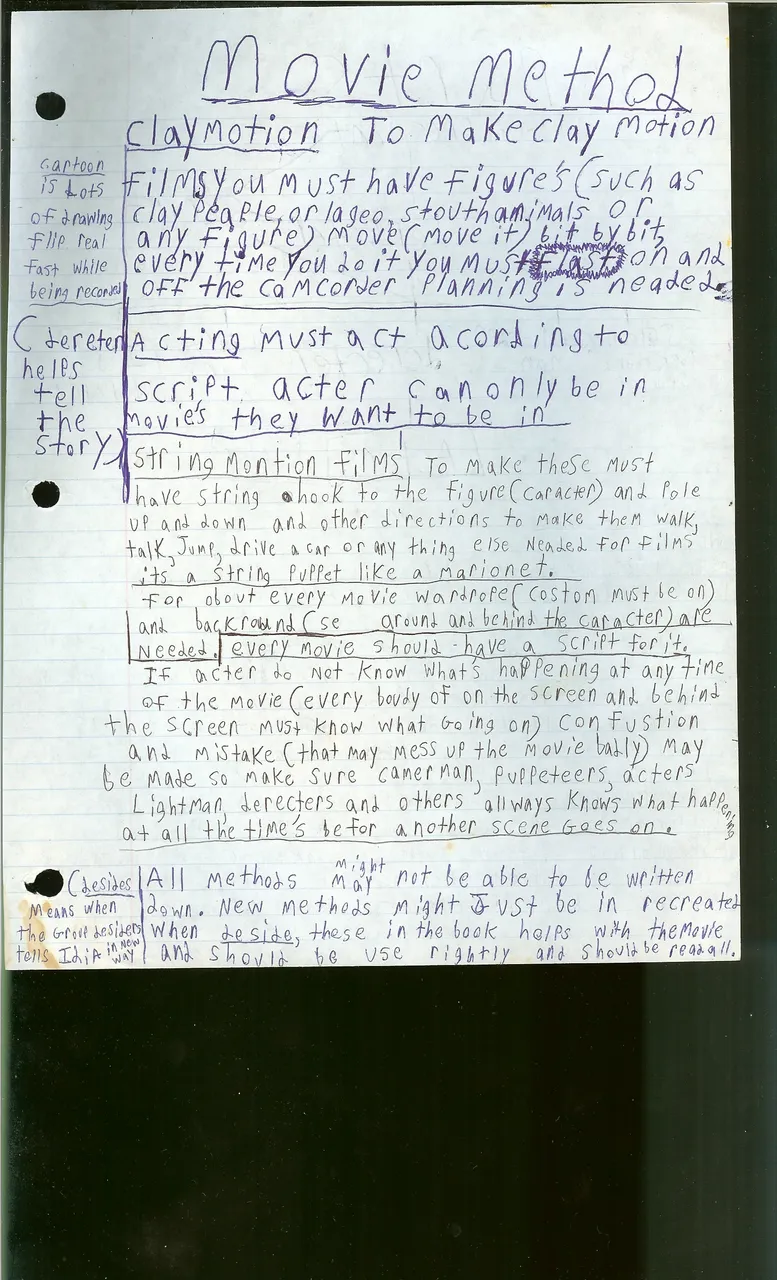 Movie Method
claymotion To Make clay motion
films you must have figure's (such as
clay people, or lageo, stouthanimals or
any figure) move (move it) bit by bit,
every time you do it you must flast on and
off the camcorder planning is neaded.
cartoon
is lots
of drawing
flip real
fast while
being recorded
Acting must act acording to
script. acter can only be in
movie's they want to be in
(dereter
helps
tell
the
story)
String montion films To make these must
have string hook to the figure (caracter) and pole
up and down and other directions to make them walk,
talk, Jump, drive a car or any thing else neaded for films
its a string puppet like a marionet.
for obout every movie wardrope (costom must be on)
and backround (se around and behind the caracter) are
needed. every movie should have a script for it.
If acter do not know what's happening at any time
of the movie (every boudy of on the screen and behind
the screen must know what going on) confustion
and mistake (that may mess up the movie badly) may
be made so make sure camerman, puppeteers, acters
Lightman, derecters and others allways knows what happening
at all the time's befor another scene goes on.
All methods might may not be able to be written
down. New methods might Just be in recreated
when deside, these in the book helps with the movie
and should be use rightly and should be read all.
(desides
means when
the Group desiders
tells Idia in new
way